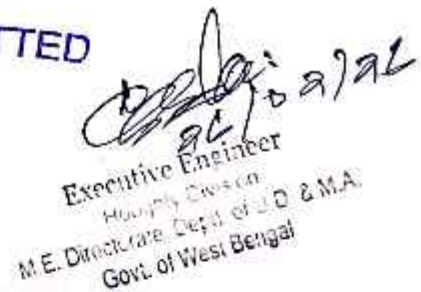 TTED
Executive Engineer
Hooghly Division
M.E. Directorate, Deptt. of U.D. & M.A.
Govt. of West Bengal